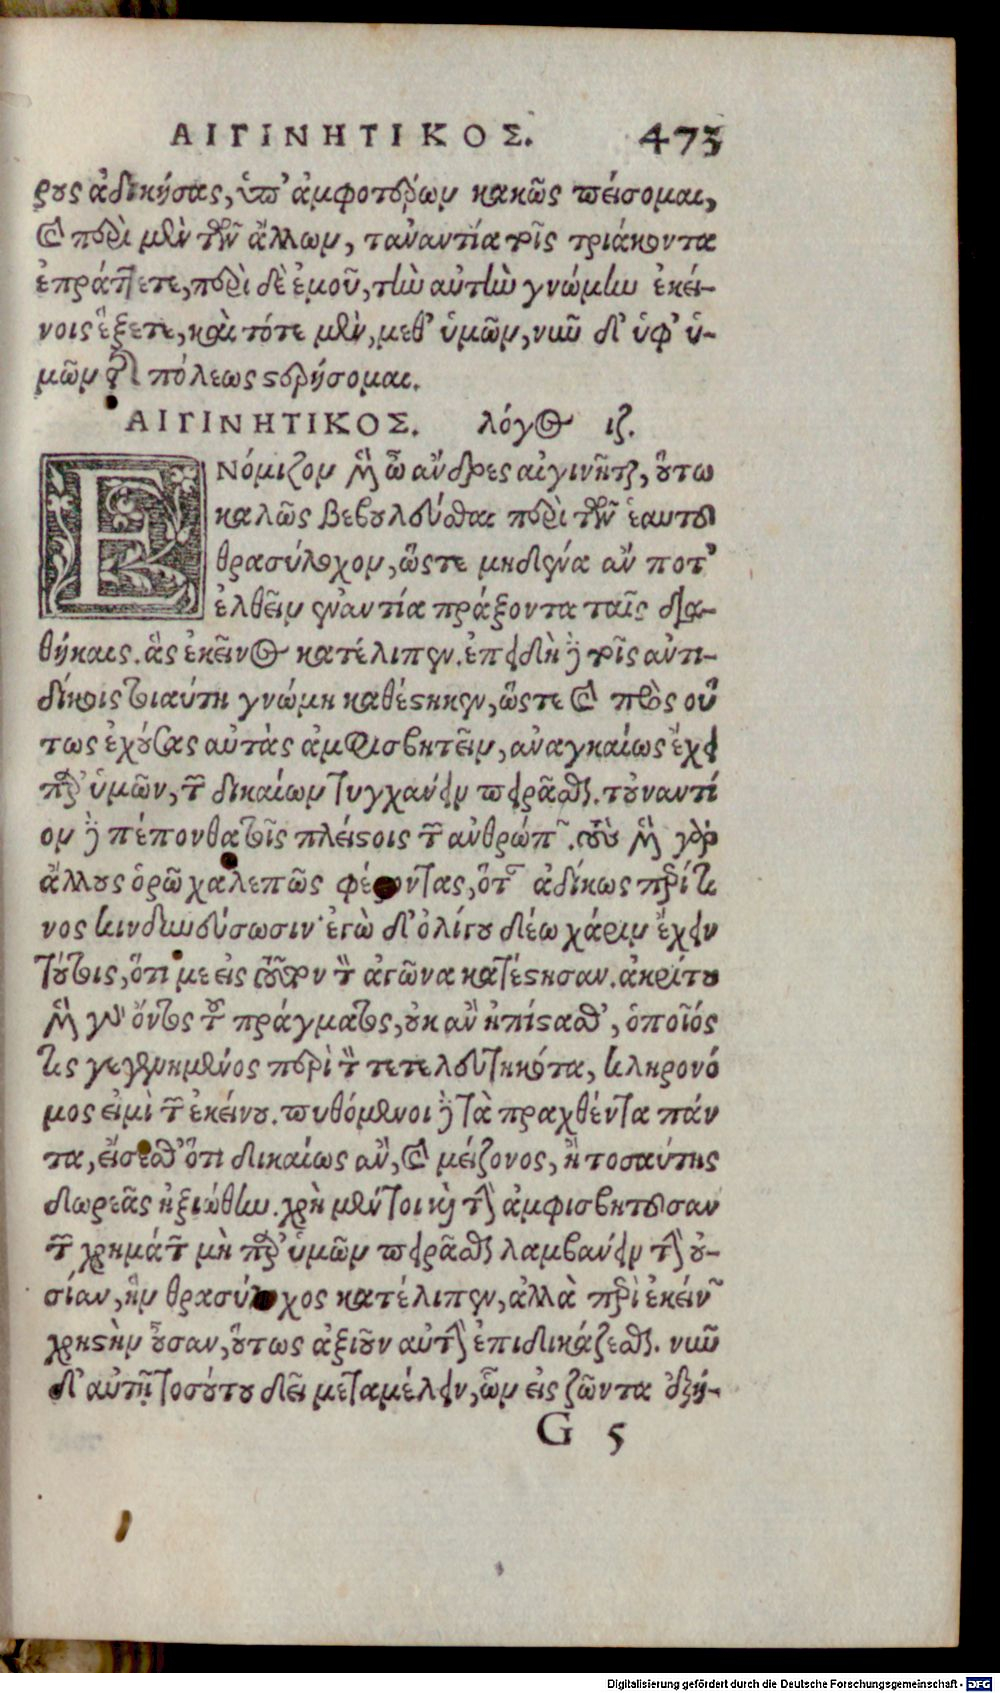 ΑΙΓΙΝΗΤΙΚΟΣ. 473
ρους ἀδικήσας, ὑπ' ἀμφοτέρων κακῶς πείσομαι,
καὶ περὶ μὲν τῶν ἄλλων, τἀναντία τοῖς τριάκοντα
ἐπράττετε, περὶ δὲ ἐμοῦ, τὴν αὐτὴν γνώμην ἐκεί-
νοις ἕξετε, καὶ τότε μὲν, μεθ' ὑμῶν, νῦν δ' ὑφ' ὑ-
μῶν τῆς πόλεως στερήσομαι.
ΑΙΓΙΝΗΤΙΚΟΣ. λόγος ιζ.
ΕΝόμιζον μὲν ὦ ἄνδρες αἰγινῆται, οὕτω
καλῶς βεβουλεῦσθαι περὶ τῶν ἑαυτοῦ
θρασύλοχον, ὥστε μηδένα ἄν ποτ'
ἐλθεῖν ἐναντία πράξοντα ταῖς δια-
θήκαις. ἃς ἐκεῖνος κατέλιπεν. ἐπειδὴ δὲ τοῖς ἀντι-
δίκοις τοιαύτη γνώμη καθέστηκεν, ὥστε καὶ πρὸς οὕ
τως ἐχούσας αὐτὰς ἀμφισβητεῖν, ἀναγκαίως ἔχει
παρ' ὑμῶν, τῶν δικαίων τυγχάνειν πειρᾶσθαι. τοὐναντί
ον δὲ πέπονθα τοῖς πλείστοις τῶν ἀνθρώπων. τοὺς μὲν γὰρ
ἄλλους ὁρῶ χαλεπῶς φέροντας, ὅταν ἀδίκως περί τι
νος κινδυνεύσωσιν· ἐγὼ δ' ὀλίγου δέω χάριν ἔχειν
τούτοις, ὅτι με εἰς τοῦτον τὸν ἀγῶνα κατέστησαν. ἀκρίτου
μὲν γὰρ ὄντος τοῦ πράγματος, οὐκ ἂν ἠπίστασθ', ὁποῖός
τις γεγενημένος περὶ τὸν τετελευτηκότα, κληρονό
μος εἰμὶ τῶν ἐκείνου. πυθόμενοι δὲ τὰ πραχθέντα πάν
τα, εἴσεσθ' ὅτι δικαίως ἂν, καὶ μείζονος, ἢ τοσαύτης
δωρεᾶς ἠξιώθην. χρὴ μέντοι καὶ τὴν ἀμφισβητοῦσαν
τῶν χρημάτων μὴ παρ' ὑμῶν πειρᾶσθαι λαμβάνειν τὴν οὐ-
σίαν, ἣν θρασύλοχος κατέλιπεν, ἀλλὰ περὶ ἐκεῖνον
χρηστὴν οὖσαν, οὕτως ἀξιοῦν αὐτὴν ἐπιδικάζεσθαι. νῦν
δ' αὐτῇ τοσούτου δεῖ μεταμέλειν, ὧν εἰς ζῶντα ἐξή-
G 5
Digitalisierung gefördert durch die Deutsche Forschungsgemeinschaft - DFG